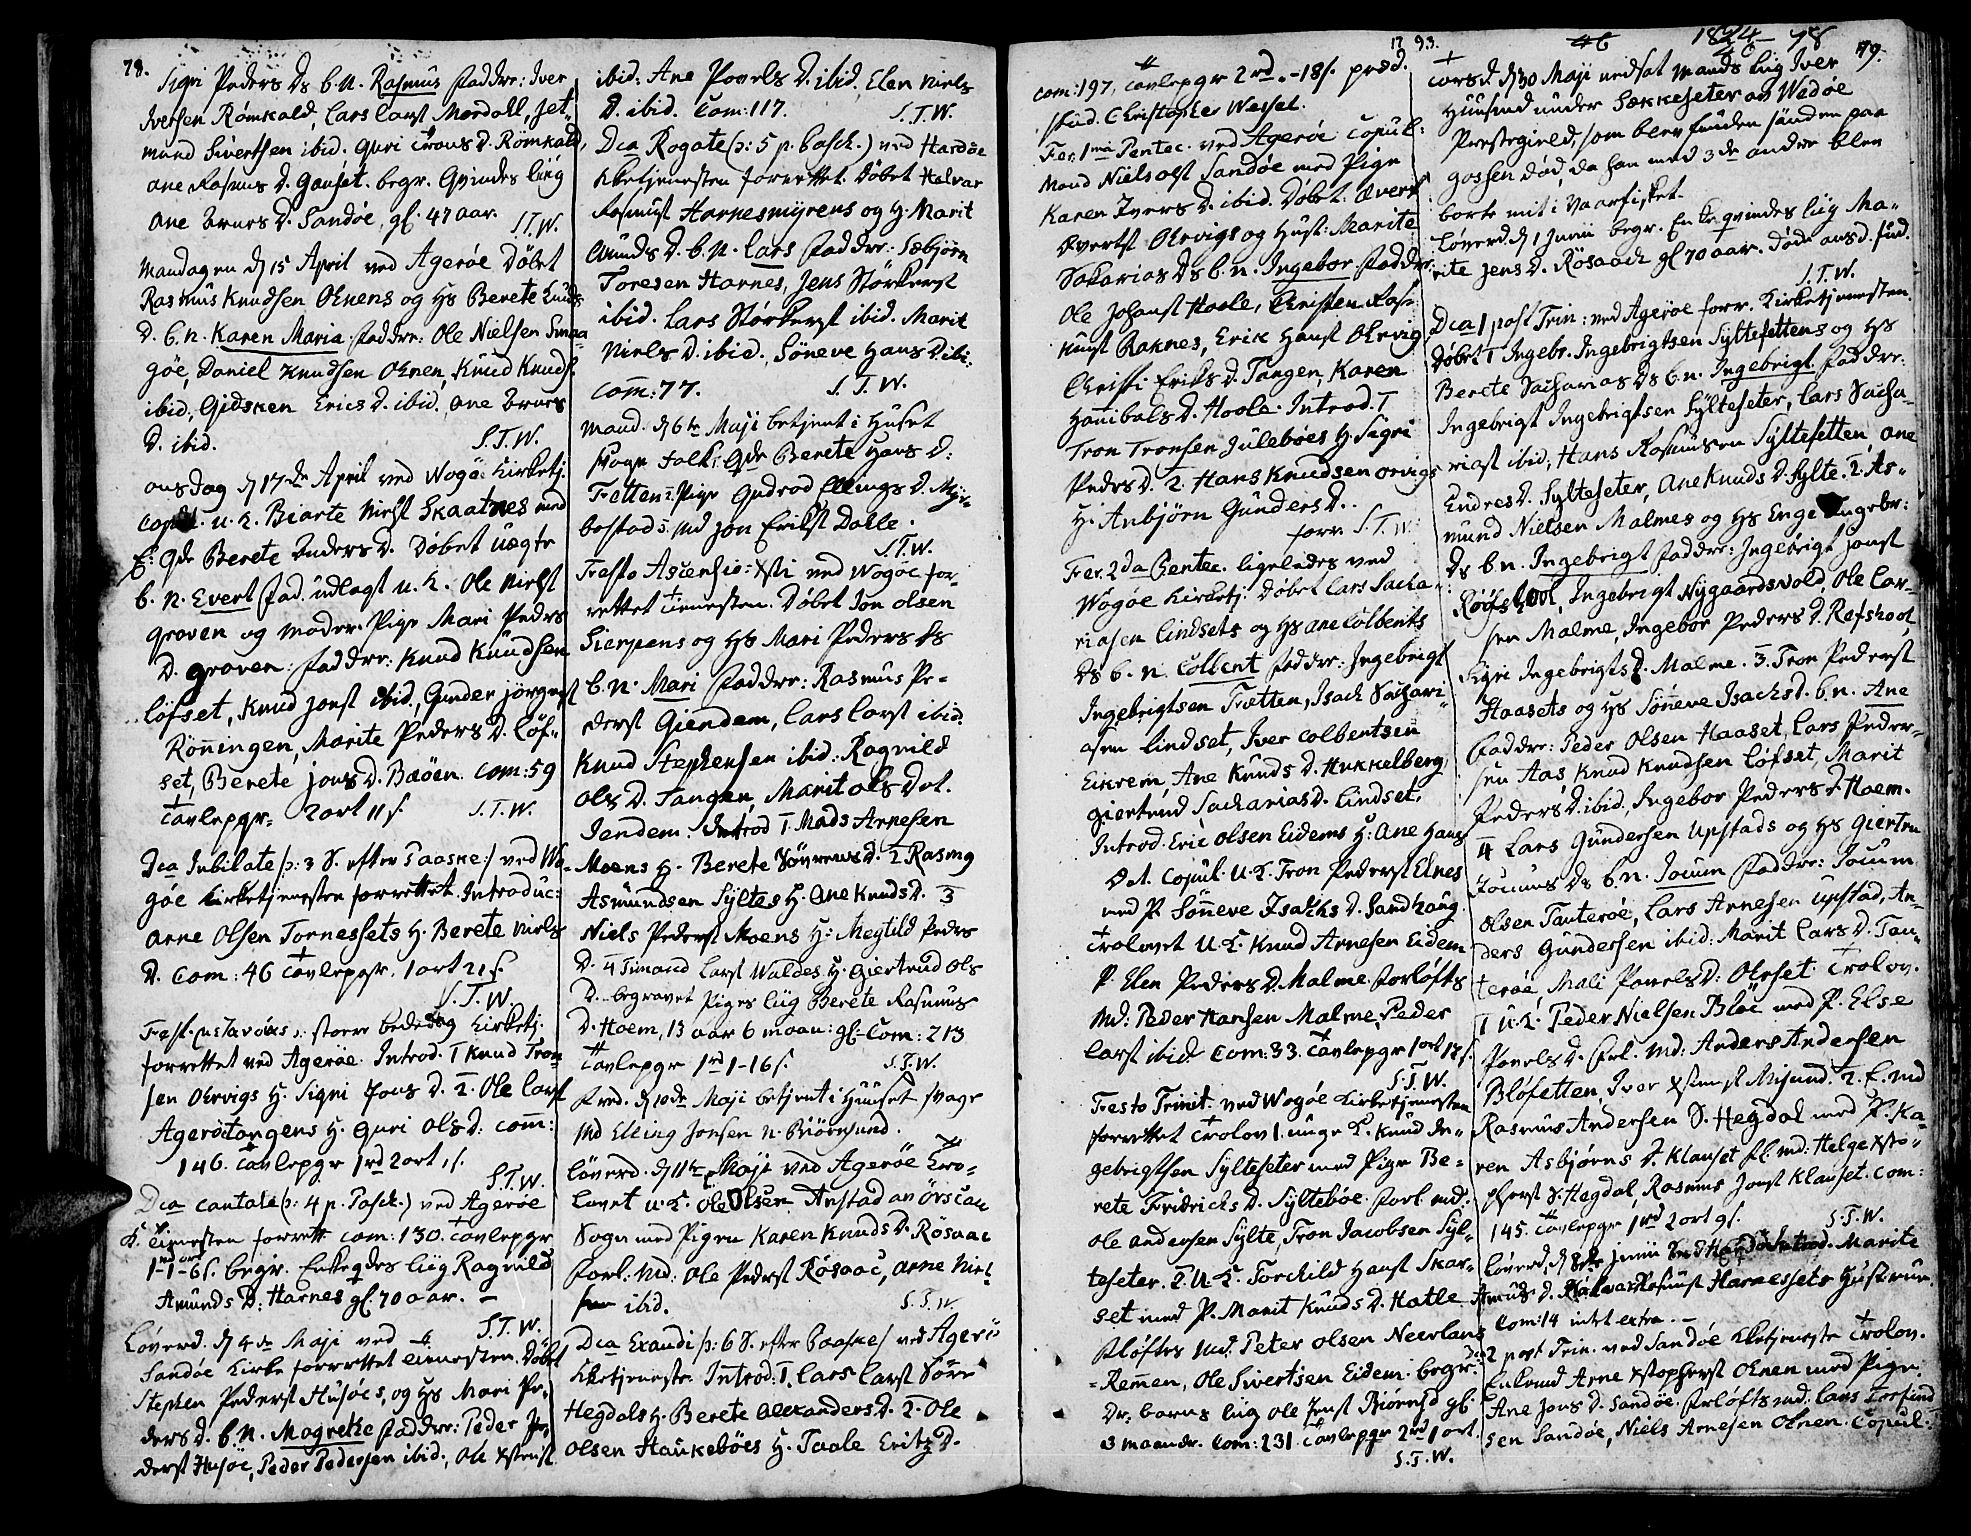 78.
Sigri Peders Ds b. N. Rasmus Faddr: Iver
Iversen Römkald, Lars Larss Mordall,
mund Sivertsen ibid. Guri Trons D. Römkald,
ane Rasmus D. Gauset. begr. Qvindes liig
Ane Ivers D. Sandöe, gl. 47 aar.
S.T.W.
Mandagen d 15 April ved Agerøe Döbt
Rasmus Knudsen Oenens og Hs Berete Knuds
D. b. n. Karen Maria Faddr: Ole Nielsen
göe, Daniel Knudsen Oenen, Knud Knuds.
ibid, Gidsken Erics D. ibid, Ane Ivers
D. ibid.
S.T.W.
onsdag d 17de April ved Wogöe Kirketj.
Copul. u. K. Biarte Nielss Skaatnes med
E: qde Berete Enders D. Döbet uægte
b. N. Evert Fad. udlagt u. K. Ole Nielss
Groven og moder Pige Mari Peders
D. Groven: Faddr: Knud Knudsen
Löfset, Knud Jonss ibid, Gunder Jörgenss
Rönningen, Marite Peders D. Löf-
set, Berete Jons D. Bæöen. Com: 59
Tavlepgr. 2 ort 11 s.
S.T.W.
Dca Jubilate (: 3 S. efter Paaske:) ved Wo-
göe Kirketjenesten forrettet. Introduc:
Arne Olsen Tornessets H. Berete Niels
D. Com: 46 Tavlepgr. 1 ort 21 s.
S.T.W.
store bededag Kirketj.
forrettet ved Agerøe. Introd. 1 Knud Tron-
sen Oervigs H. Sigri Jons D. 2. Ole Larss
Agerötangens H. Guri Ols D. Com:
146. Tavlepgr 1 rd 2 ort 1 s.
S.T.W.
Dca Cantate (: 4 p. Pasch.) ved Agerøe
K. Tienesten forrett Com: 130. Tavlepgr
1-1-6 s. begr. Enkeqdes liig Ragnild
Amunds D. Harnes gl. 70 aar. -
S.T.W.
Löverd. d 4de Maji ved
Sandöe Kirke forrettet tienesten. Döbt
Stephen Pederss Husöes, og Hs Mari Pe-
ders D. b. N. Magrethe Faddr: Peder Pe-
derss Husöe, Peder Pedersen ibid, Ole
ibid: Ane Povels D. ibid, Elen Niels
D. ibid. Com: 117.
S.T.W.
Dca Rogate (: 5 p. Pasch.) ved Hardöe
Kketjenesten forrettet. Döbet Halvar
Rasmuss Harnesmyrens og H. Marit
Amunds D. b. N. Lars Faddr: Sæbjörn
Toresen Harnes, Jens Störkerss
ibid. Lars Störkerss ibid. Marit
Niels D. ibid, Söneve Hans D ibi:
Com: 77.
S.T.W.
Mand. d 6te Maji betjent i Huset
svage Folk: Qde Berete Hans D.
Frætten 2. Pige Gudrod Ellings D. Myr-
bostad 3. Md Jon Erikss Dalle.
S.T.W.
Festo Ascensio: Xsti ved Wogöe for-
rettet tienesten. Döbet Jon Olsen
Sierpens og Hs Mari Peders Ds
b. N. Mari Faddr: Rasmus Pe-
derss Giendem, Lars Larss ibid.
Knud Stephensen ibid: Ragnild
Ols D. Tangen, Marit Ols D ot.
Jendem. Introd 1. Mads Arnesen
Moens H. Berete D. 2 Rasmus
Asmundsen Syltes H. Ane Knuds D. 3
Niels Pederss Moens H: Megtild Peders
D. 4 Simand Larss Waldes H. Giertrud Ols
D. begravet Piges liig Berete Rasmus
D. Hoem, 13 aar 6 maan: gl. Com: 213
Tavlepgr 1 rd 1-16 s.
S.T.W.
Fred. d 10de Maji betjent i Huuset svage
Md Elling Jonsen N. Biörnsund.
Löverd. d 11te Maji ved Agerøe Tro-
lovet u. K. Ole Olsen Anstad
Sogn med Pigen Karen Knuds D. Rösaac
Forl: Md: Ole Pederss Rösaac, Arne Niel-
ibid.
S.T.W.
Dca Exaudi (: 6 S. efter Paaske) ved Agerö
Kketjeneste Introd: 1. Lars Larss Söre
Hegdals H. Berete Alexanders D. 2. Ole
Olsen Haukeböes H. Taale Erits D.
17 93.
Com: 197, Tavlepgr 2 rd. - 18 s. præd.
stud. Christopher Wessel.
Fer. 1mi Pentec. ved Agerøe Copul:
Mand Niels Olss Sandöe med Pige
Karen Ivers D. ibid. Döbet. Overt
Overtss Oervigs og Hust: Marite
Sakarias Ds b. n. Ingebor Faddr:
Ole Johanss Hoole, Christen Ras:
muss Raknes, Eric Hanss Oervig
Christi Eriks D. Tangen, Karen
Hanibals D. Hoole. Introd. 1
Tron Tronsen Juleböes H. Sigri
Peders D. 2. Hans Knudsen Orvigs
H. Anbjörn Gunders D.
forr. S.T.W.
Fer. 2da Pentec. ligeledes ved
Wogöe Kirketj. Döbet Lars Sacha-
riasen Lindsets og Hs Ane Colbents
Ds b. n. Colbent Faddr: Ingebrigt
Ingebrigtsen Frætten, Isach Sachari-
asen Lindset, Iver Colbentsen
Eikrem, Ane Knuds D. Hukkelberg,
Giertrud Sacharias D. Lindset,
Introd. Eric Olsen Eidems H: Ane Hans
D ot. Copul. U. K. Tron Pederss Elnes
med P. Söneve Isachs D. Sandhaug.
Trolovet U. K. Knud Arnesen Eidem
P. Elen Peders D. Malme Forlöfts
Md: Peder Hansen Malme, Peder
Larss ibid Com: 33. Tavlepgr 1 ort 17 s.
S.T.W.
Festo Trinit. ved Wogöe Kirketjenesten
forrettet Trolov 1. unge K. Knud In-
gebrigtsen Sylteseter med Pige Be-
rete Fridrichs D. Sylteböe. Forl. md.
Ole Andersen Sylte, Tron Jacobsen Syl-
teseter. 2. U. K. Torchild Hanss Skar-
set med P. Marit Knuds D. Hatle
Flöftes Md. Peter Olsen Neerland
Remen, Ole Sivertsen Eidem. begr:
Dr: barns liig Ole Biörnsd gl.
3 maander. Com: 231 Tavlepgr 2 rd 1 ort.
S.T.W.
46
1824 - 78
79.
Torsd. d 30 Maji nedsat Mands liig Iver
Huusmd under Sækkeseter av Wedöe
Prestegield, som blev funden sönden paa
Gossen död, da han med 3de andre blev
borte mit i Vaarfisket.
Löverd. d 1 Junii begr. Enkeqvindes liig Ma-
rite Jens D. Rösaack gl. 70 aar.
S.T.W.
Dca 1 post Trin: ved Agerøe forr. Kirketjenesten.
Döbt 1 Ingebr. Ingebrigtsen Syltesettens og Hs
Berete Sacharias Ds b. n. Ingebrigt Faddr:
Ingebrigt Ingebrigtsen Sylteseter, Lars Sacha-
riass ibid; Hans Rasmusen Syltesetten, Ane
Endres D. Sylteseter, Ane Knuds D. Sylte. 2. As-
mund Nielsen Malmes og Hs Enge Ingebr:
Ds b. n. Ingebrigt Faddr: Ingebrigt Jonss
Röfshool, Ingebrigt Nygaardsvold, Ole Lar-
sen Malme, Ingebor Peders D. Refshool,
Sigri Ingebrigts D. Malme. 3. Tron Pederss
Haasets og Hs Söneve Isachs D. b. n. Ane
Faddr: Peder Olsen Haaset, Lars Peder-
sen Aas, Knud Knudsen Löfset, Marit
Peders D. ibid, Ingebor Peders D Hoem.
4 Lars Gundersen Upstads og Hs Giertru
Jocums Ds b. n. Jocum Faddr: Jocum
Olsen Tauteröe, Lars Arnesen Upstad, An-
ders Gundersen ibid: Marit Lars D. Tau-
teröe, Mali Povels D. Oerset. Trolov.
1 U. K. Peder Nielsen Blöe med P. Else
Povels D. Forl. Md: Anders Andersen
Blösetten, Iver Misund. 2. E. Md
Rasmus Andersen S. Hegdal med P. Ka-
ren Asbjörns D. Klauset fl. md: Helge Xsto-
S. Hegdal, Rasmus Jonss Klauset. Com:
145. Tavlepgr 1 rd 2 ort 9 s.
S.T.W.
Löverd. d 8de Junii ved Hardöe Introd. Marite
Amuds D. Halvar Rasmuss Harnessets Hustrue.
Com: 14 intet extra. -
Dca 2 post Trin. ved Sandöe Kketjeneste Trolov.
Enkemd Arne Xstopherss Oenen med Pige
Ane Jons D. Sandöe. Forlöfts md: Lars Torsend-
sen Sandöe, Niels Arnesen Oenen. Copul: